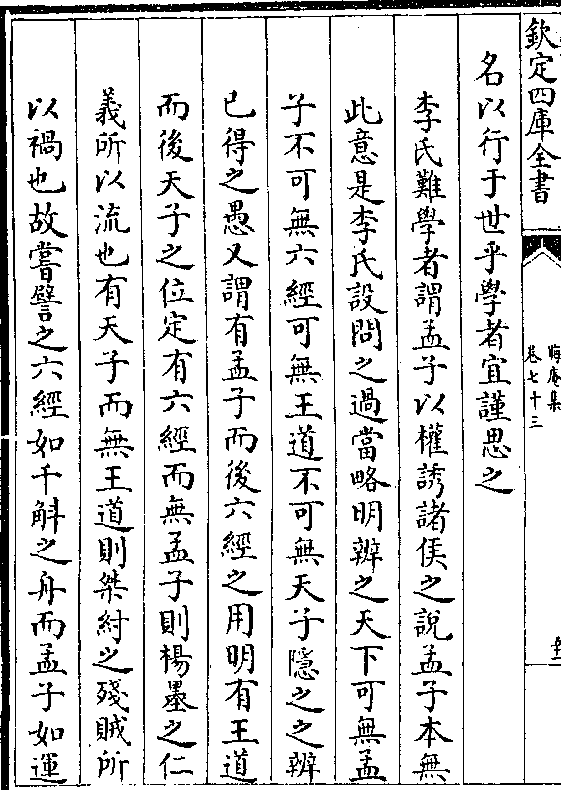 欽定四庫全書
晦庵集
卷七十三
名以行于世乎學者宜謹思之
李氏難學者謂孟子以權誘諸侯之說孟子本無
此意是李氏設問之過當略明辨之天下可無孟
子不可無六經可無王道不可無天子隱之之辨
已得之愚又謂有孟子而後六經之用明有王道
而後天子之位定有六經而無孟子則楊墨之仁
義所以流也有天子而無王道則桀紂之殘賊所
以禍也故嘗譬之六經如千斛之舟而孟子如運